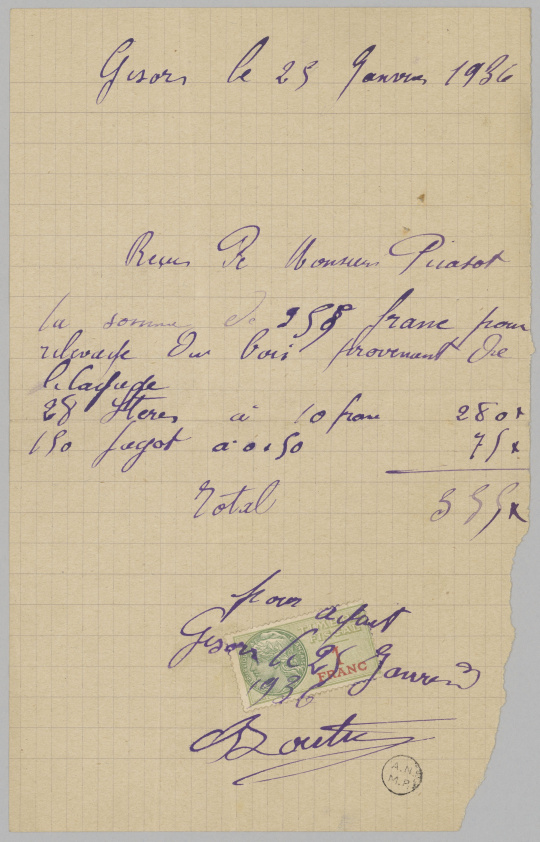 Gisors le 25 Janvier 1936
Reçus De Monsieur Picasot
la somme de 355 franc pour
relevage du bois provenant de
28 Steres à 10 franc 280x
150 fagot à 0.50 75x
Total 355x
pour aquit
Gisors le 25 Janvier
1936
1
FRANC
A.N.
M.P.